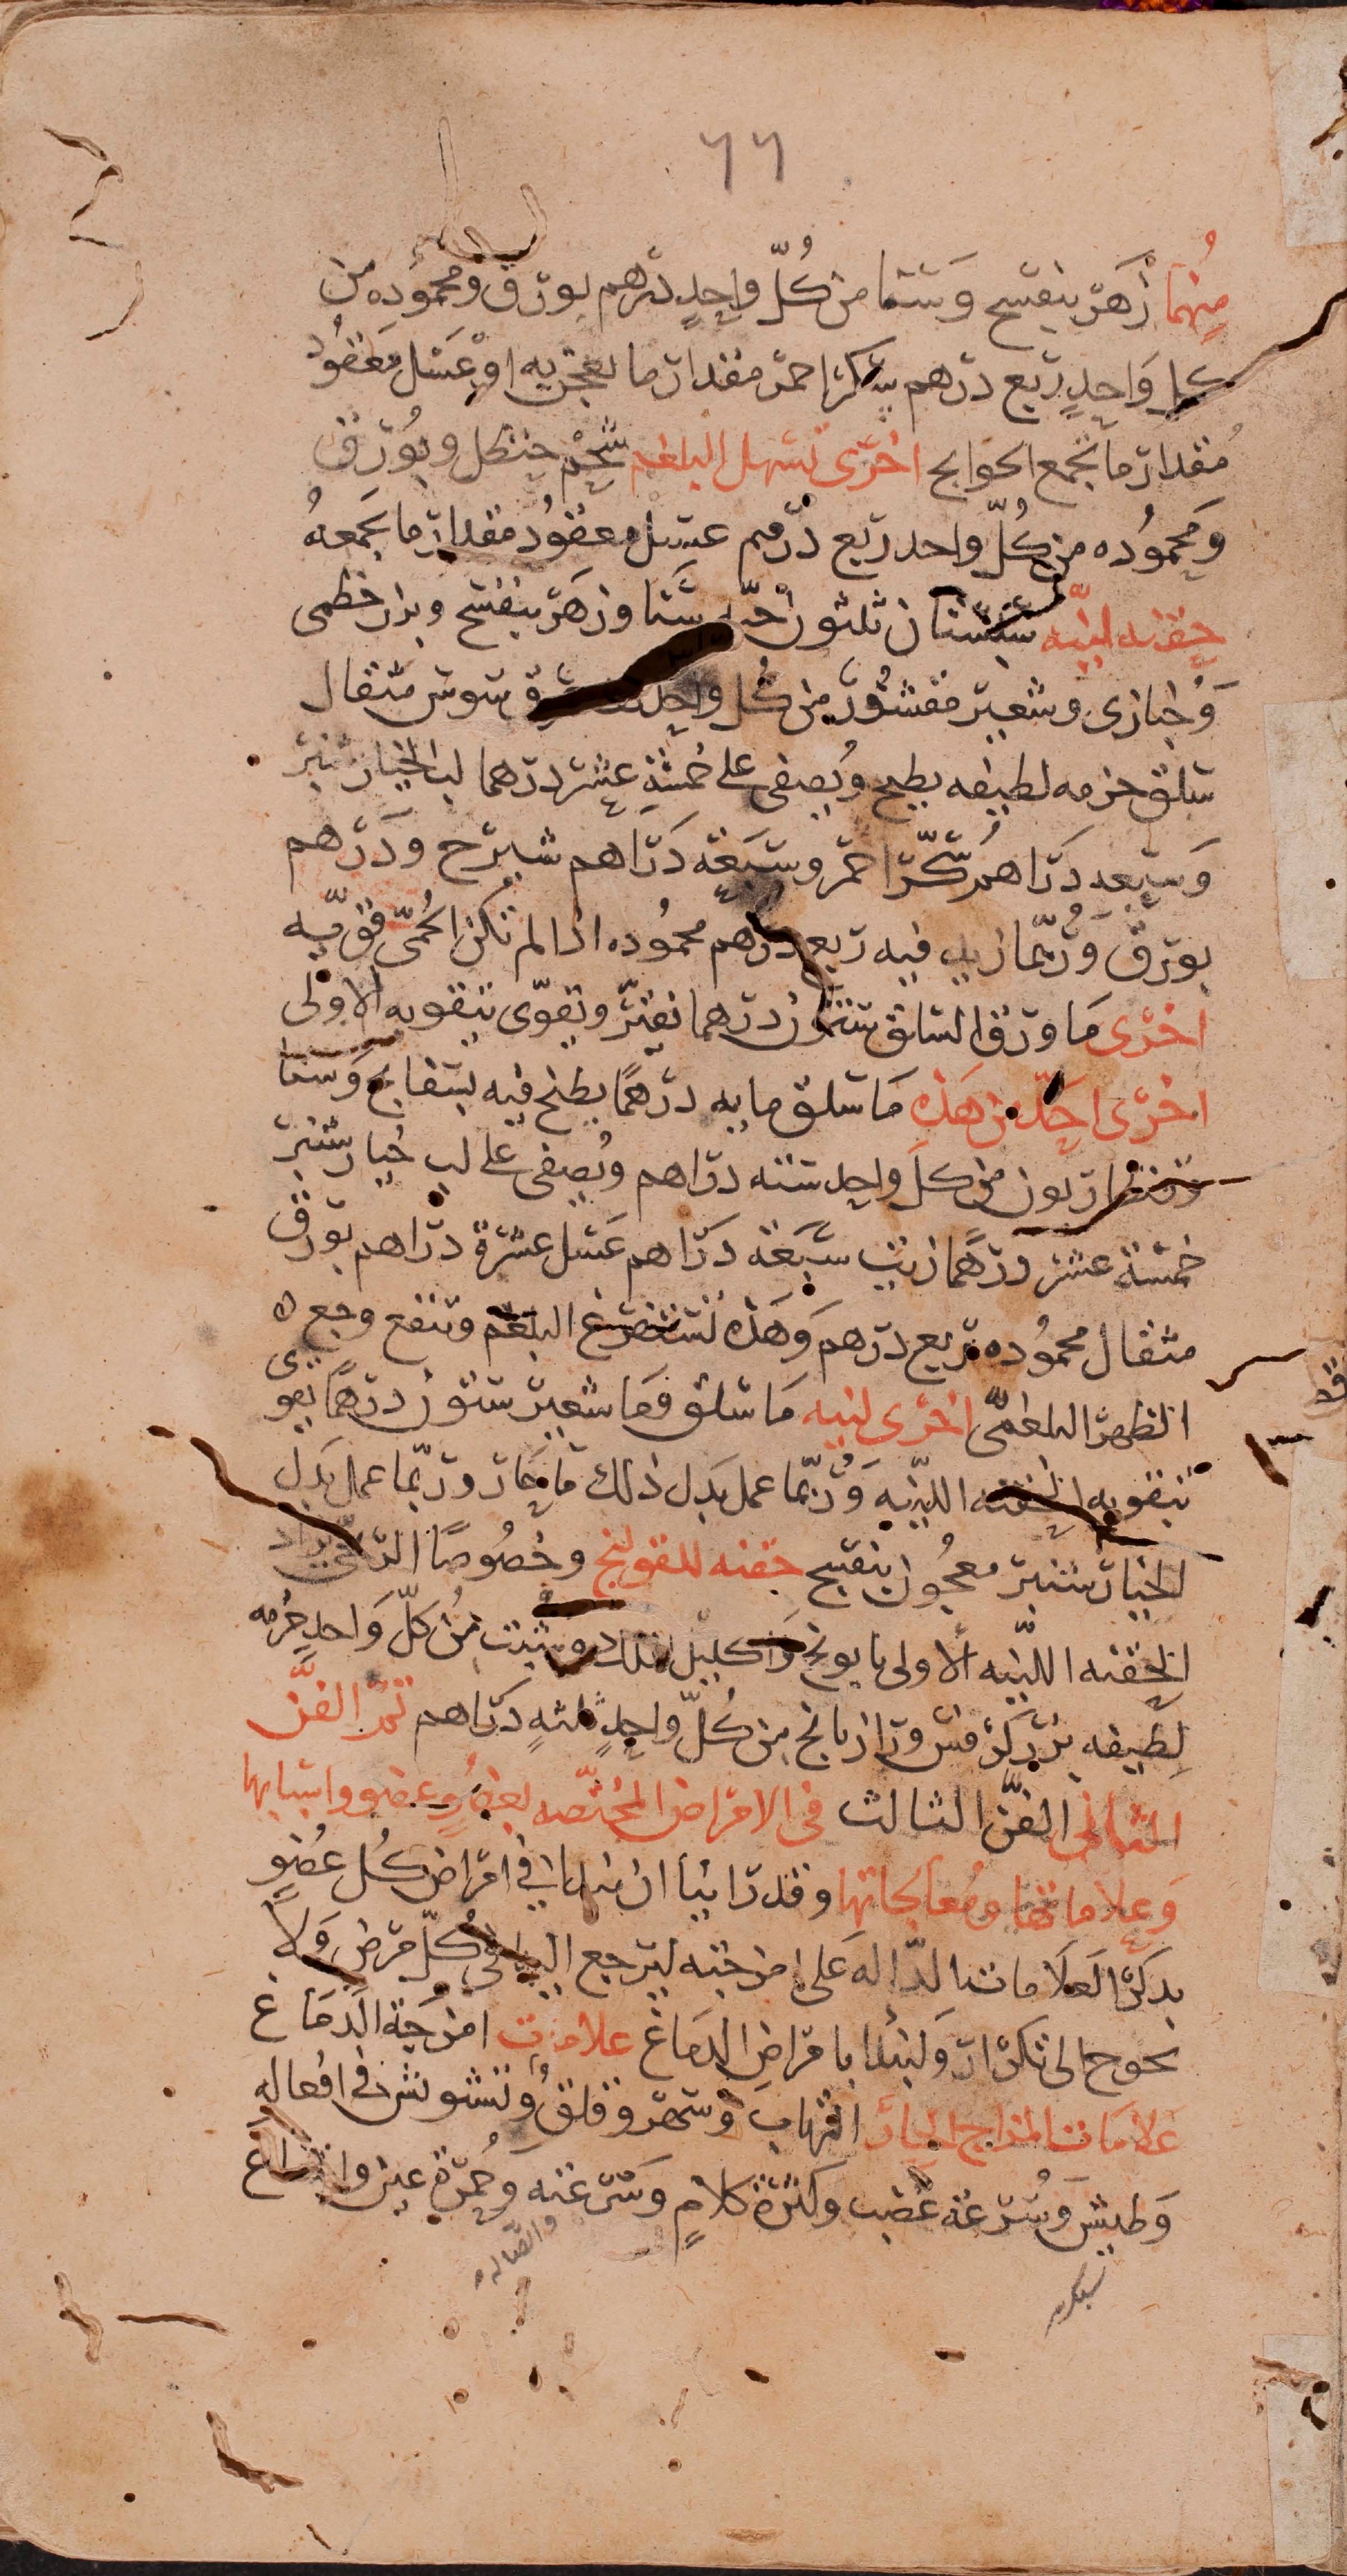 ٦٦
مِنهُما زَهَر بنفسج وَسَنا من كُلّ واحِدٍ درهم بورق ومحموده من
كل وَاحِدٍ ربع درهم سكر احمر مقدار ما يعجن به او عَسَل مَعقُود
مُقدار ما يجمع الحوايج اخرى تسهل البلغم شحْم حنظل وبُورق
وَمَحمُوده من كُلّ واحد ربع درهم عسل معقُود مقدار ما يَجمعهُ
حقنه لينّه سبستان ثلثون حبّه سَنا وزهَر بنفسج وبزر خطمى
وَخُبازى وشعير مقشُور من كُل واحِد سوس مثقال
سلق حزمه لطيفه يطبخ ويُصفى على خمسَةِ عشر درهما لب الخيار شنبر
وَسبعه دَرَاهم سُكّر احمَر وسَبعَة دَرَاهم شيرج ودَرهم
بورق وَرُبّما زيد فيه ربع درهم محمُوده اذا لم تكن الحُمّى قوّيه
اخرى مَا ورق السلق ستون درهما يفتر وتقوّى بتقويه الاولى
اخرى احَدّ من هَذه مَا سلق مايه درهمًا يطبخ فيه بسفايج وَسنا
وقنطاريون من كلّ واحد سته دراهم ويُصفى على لب خيار شنبر
خمسَة عشر درهَمًا زيت سَبعَة دَرَاهم عَسَل عشرة دراهم بورق
مثقال محمُوده ربع درهم وَهَذه تستفرغ البلغم وتنفع وجع
الظهر البلغمّى اخرى لينه مَا سلق وَمَا شعير ستون درهمًا يقوى
بتقويه الحقنه الليّنه وَرُبّما عمل بَدل ذلك مَا حَار وربّما عمل بَدل
الخيار شنبر معجُون بنفسج حقنه للقولنج وخصُوصًا الريحى يزاد
الحقنه الليّنه الأولى بابونج وَاكليل الملك وشبت مِن كلّ وَاحدٍ حُزمه
لطيفه بزر كرفس ورازيانج من كُلّ واحِدٍ ثلثهِ دَرَاهم تمّ الفنّ
الثانى الفنّ الثالث فى الامراض المُختصّه بعضوٍ عضو واسبابها
وَعلاماتها ومُعَالجاتها وقد رَاينا ان نبدا فى امراض كُل عُضوٍ
بذكر العَلاَمات الدّالة عَلى امزجته ليرجع اليها فى كُلّ مرَض وَلاَ
نحوج الى تكرار وَلنبدا بامراضِ الدماغ علامات امزجَة الدمَاغ
عَلامَات المزاج الحَار التهابَ وسَهَر وقلق وُتشوش فى افعاله
وَطيش وسُرعَة غضب وكثرة كلامٍ وَسرعته وَحُمرَة عين وانتفاع